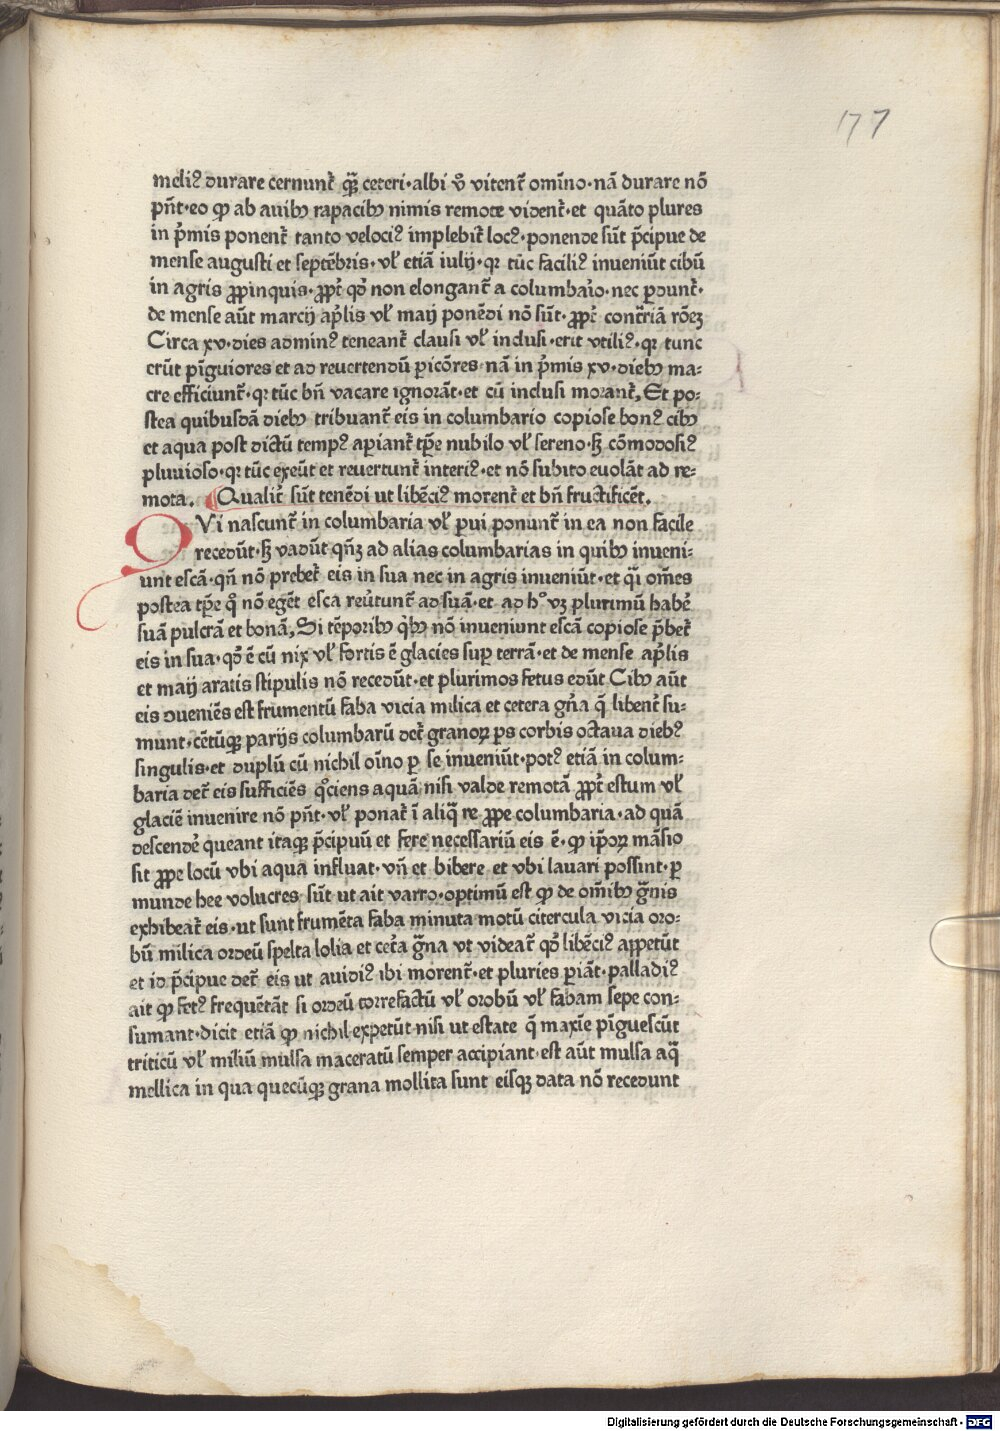 177
meliꝰ durare cernunt̃ qȝ̃ ceteri·albi v̊ vitent̃ om̄ino·nā durare nō
pn̄t·eo ꝙ ab auibꝫ rapacibꝫ nimis remote vident̃·et quāto plures
in p̄mis ponent̃ tanto velociꝰ implebit̃ locꝰ·ponende sūt p̄cipue de
mense augusti et septēbris·vl̛ etiā iulij·qꝛ tūc faciliꝰ inueniūt cibū
in agris ꝓpinquis·ꝓpt̃ qd̛ non elongant̃ a columbaīo·nec ꝑdunt̃·
de mense aūt marcij ap̄lis vl̛ maij ponēdi nō sūt·ꝓpt̃ cont̃riā rōeꝫ
Circa xv·dies adminꝰ teneant̃ clausi vl̛ inclusi·erit vtiliꝰ·qꝛ tunc
erūt pīguiores et ad reuertendū ꝑicōres·nā in p̄mis xv·diebꝫ ma⸗
cre efficiunt̃·qꝛ tūc bn̄ vacare ignorāt·et cū inclusi morant̃, Et po⸗
stea quibusdā diebꝫ tribuant̃ eis in columbario copiose bonꝰ cibꝫ
et aqua post dictū tempꝰ aꝑiant̃ tp̄e nubilo vl̛ sereno·sꝫ cōmodosiꝰ
pluuioso·qꝛ tūc exeūt et reuertunt̃ interiꝰ·et nō subito euolāt ad re⸗
mota. Qualit̃ sūt tenēdi ut libēciꝰ morent̃ et bn̄ fructificēt.
QVi nascunt̃ in columbaria vl̛ ꝑui ponunt̃ in ea non facile
recedūt·sꝫ vadūt qn̄ꝫ ad alias columbarias in quibꝫ inueni⸗
unt escā·qn̄ nō prebet̃ eis in sua nec in agris inueniūt·et qi̅ om̄es
postea tp̄e qͦ nō egēt esca reūtunt̃ ad suā·et ad hͦ vꝫ plurimū habe̛
suā pulcrā et bonā, Si tēporibꝫ qibꝫ nō inueniunt escā copiose p̄bet̃
eis in sua·qd̛ ē cū nix vl̛ fortis ē glacies suꝑ terrā·et de mense ap̄lis
et maij aratis stipulis nō recedūt·et plurimos fetus edūt Cibꝫ aūt
eis ɔueniēs est frumentū faba vicia milica et cetera gn̄a q̄ libent̃ su⸗
munt·cētūqꝫ parijs columbarū det̃ granoꝝ ꝑs corbis octaua diebꝰ
singulis·et duplū cū nichil oīno ꝑ se inueniūt·potꝰ etiā in colum⸗
baria det̃ eis sufficiēs qͦciens aquā nisi valde remotā ꝓpt̃ estum vl̛
glaciē inuenire nō pn̄t·vl̛ ponat̃ ī aliqͣ re ꝓpe columbaria·ad quā
descende̛ queant itaqꝫ p̄cipuū et fere necessariū eis ē·ꝙ ip̄oꝝ māsio
sit ꝓpe locū vbi aqua influat·vn̄ et bibere et vbi lauari possint·ꝑ
munde hee volucres sūt ut ait varro·optimū est ꝙ de om̄ibꝫ gͣnis
exhibeat̃ eis·ut sunt frumēta faba minuta motū citercula vicia oro⸗
bū milica ordeū spelta lolia et cet̃a gͣna vt videat̃ qd̛ libēciꝰ appetūt
et id p̄cipue det̃ eis ut auidiꝰ ibi morent̃·et pluries ꝑiāt·palladiꝰ
ait ꝙ fetꝰ frequētāt si ordeū torrefactū vl̛ orobū vl̛ fabam sepe con⸗
sumant·dicit etiā ꝙ nichil expetūt nisi ut estate q̄ maxīe pīguescūt
triticū vl̛ miliū mulsa maceratū semper accipiant·est aūt mulsa aqͣ
mellica in qua quecūqꝫ grana mollita sunt eisqꝫ data nō recedunt
Digitalisierung gefördert durch die Deutsche Forschungsgemeinschaft - DFG